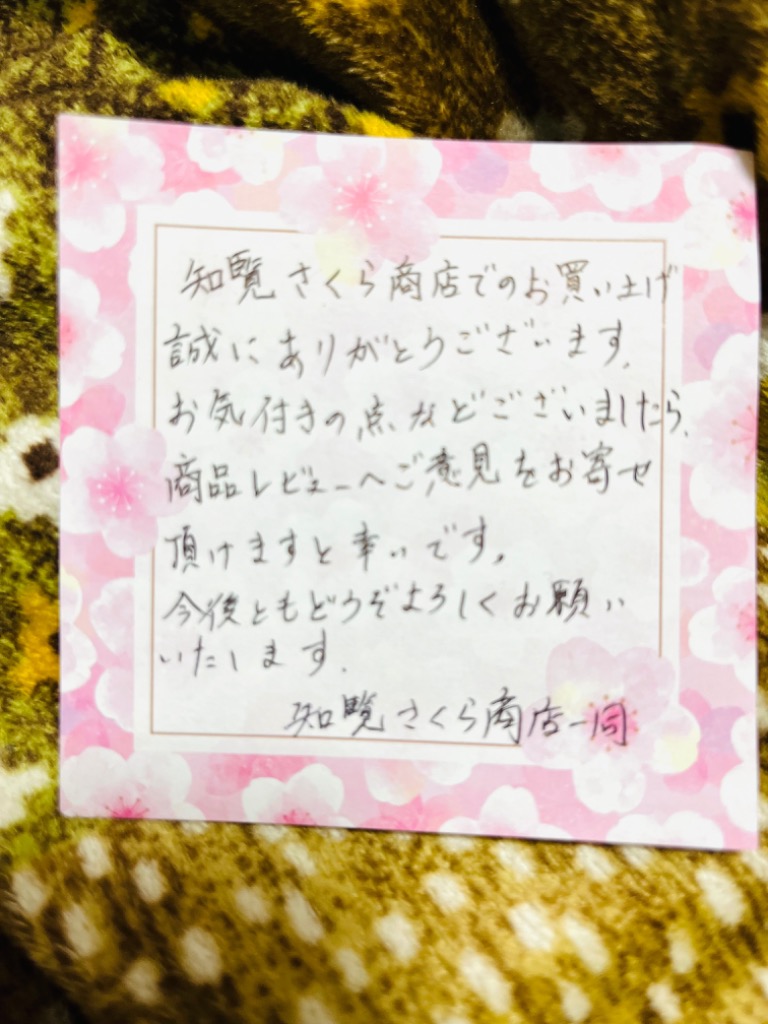 知覧さくら商店でのお買い上げ
誠にありがとうございます.
お気付きの点などございましたら、
商品レビューへご意見をお寄せ
頂けますと幸いです。
今後ともどうぞよろしくお願い
いたします.
知覧さくら商店一同